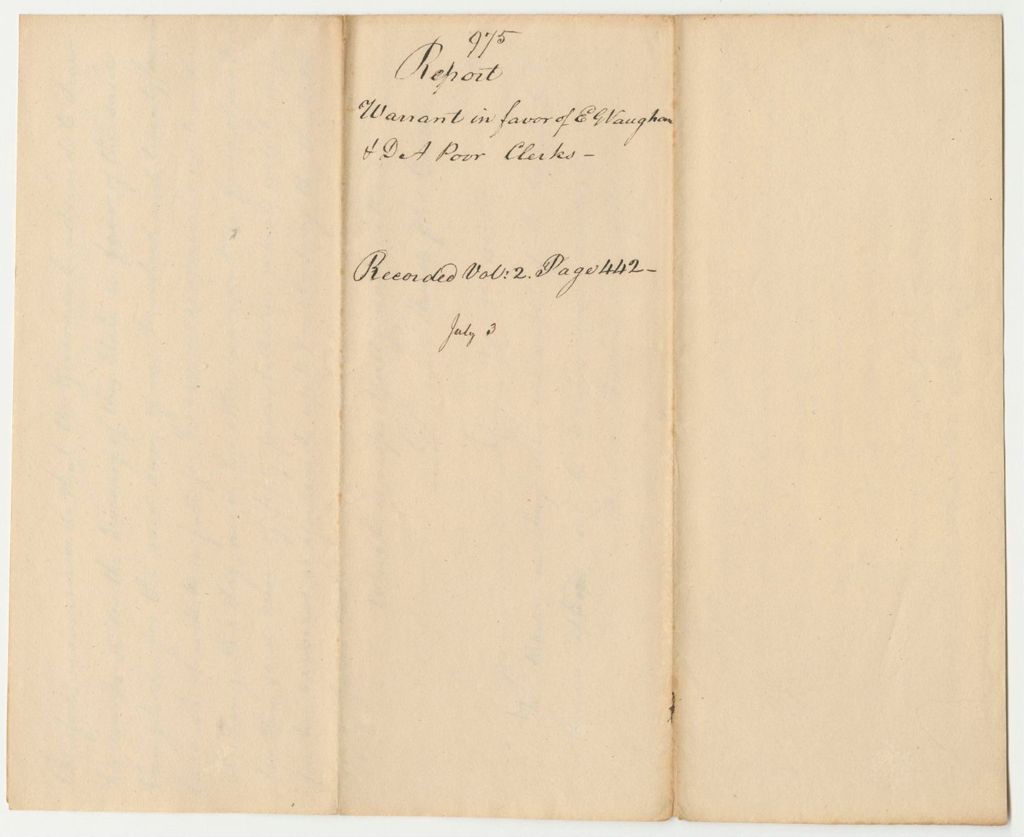 975
Report
Warrant in favor of E G Vaughan
& D A Poor Clerks -
Recorded Vol: 2. Page 442 -
July 3